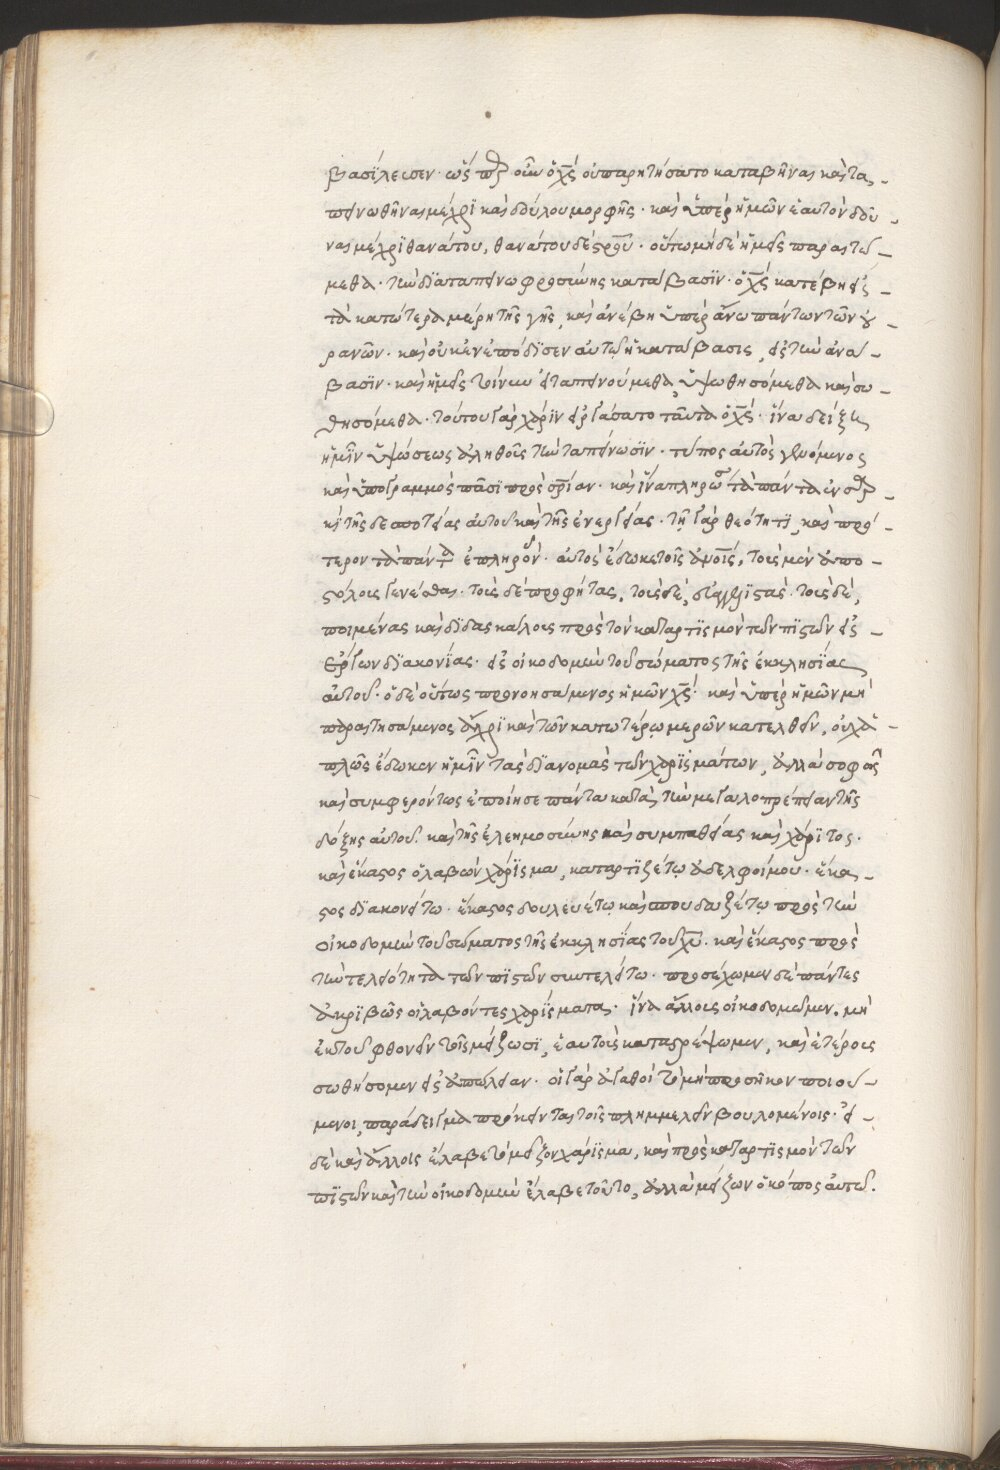 βασίλευσεν· ὥσπερ οὖν ὁ χς οὐ παρῃτήσατο καταβῆναι καὶ τα-
πεινωθῆναι μέχρι καὶ δούλου μορφῆς· καὶ ὑπὲρ ἡμῶν ἑαυτὸν δοῦ-
ναι μέχρι θανάτου, θανάτου δὲ σροῦ· οὕτω μηδὲ ἡμεῖς παραιτώ-
μεθα· τὴν διὰ ταπεινοφροσύνης κατάβασϊν· ὁ χς κατέβη εἰς
τὰ κατώτερα μέρη τῆς γῆς, καὶ ἀνέβη ὑπὲρ ἄνω πάντων τῶν οὐ-
ρανῶν· καὶ οὐκ ἐνεπόδϊσεν αὐτῷ ἡ κατάβασις, εἰς τὴν ἀνά-
βασϊν· καὶ ἡμεῖς τοίνυν εἰ ταπεινούμεθα, ὑψωθησόμεθα καὶ σω-
θησόμεθα· τούτου γὰρ χάρϊν εἰργάσατο ταῦτα ὁ χς· ἵνα δείξῃ
ἡμῖν ὑψώσεως ἀληθοῦς τὴν ταπείνωσϊν· τύπος αὐτὸς γενόμενος
καὶ ὑπογραμμὸς πᾶσϊ πρὸς σρίαν· καὶ ἵνα πληρώσῃ τὰ πάντα ἐν σαρ-
κὶ τῆς δεσποτείας αὐτοῦ καὶ τῆς ἐνεργείας· τῇ γὰρ θεότητϊ, καὶ πρό-
τερον τὰ πάντα ἐπλήρου· αὐτὸς ἔδωκε τοῖς ἀνοις, τοὺς μὲν ἀπο-
στόλους γενέσθαι· τοὺς δὲ προφήτας, τοὺς δὲ, εὐαγγελϊστάς· τοὺς δὲ,
ποιμένας καὶ διδασκάλους πρὸς τὸν καταρτϊσμὸν τῶν πϊστῶν εἰς
ἔργων δϊακονίας· εἰς οἰκοδομὴν τοῦ σώματος τῆς ἐκκλησίας
αὐτοῦ· ὁ δὲ οὕτως προνοησάμενος ἡμῶν χς· καὶ ὑπὲρ ἡμῶν μὴ
παραιτησάμενος ἄχρϊ καὶ τῶν κατωτέρω μερῶν κατελθεῖν, οὐχ ἁ-
πλῶς ἔδωκεν ἡμῖν τὰς δϊανομὰς τῶν χαρϊσμάτων, ἀλλὰ σοφῶς
καὶ συμφερόντως ἐποίησε πάντα κατὰ τὴν μεγαλοπρέπειαν τῆς
δόξης αὐτοῦ. καὶ τῆς ἐλεημοσύνης καὶ συμπαθείας καὶ χάρϊτος·
καὶ ἕκαστος ὃ λαβὼν χάρϊσμα, καταρτϊζέτω ἀδελφοί μου· ἕκα-
στος δϊακονείτω· ἕκαστος δουλευέτω καὶ σπουδαζέτω πρὸς τὴν
οἰκοδομὴν τοῦ σώματος τῆς ἐκκλησίας τοῦ χυ· καὶ ἕκαστος πρὸς
τὴν τελειότητα τῶν πϊστῶν συντελείτω· προσέχωμεν δὲ πάντες
ἀκρϊβῶς οἱ λαβόντες χαρίσματα· ἵνα ἄλλους οἰκοδομῶμεν. μὴ
ἐκ τοῦ φθονεῖν τοῖς μείζωσϊ, ἑαυτοὺς καταστρέψωμεν, καὶ ἑτέρους
σωθήσομεν εἰς ἀπώλειαν· οἱ γὰρ ἀγαθοὶ τὸ μὴ προσῆκον ποιού-
μενοι, παράδειγμα πρόκεινται τοῖς πλημμελεῖν βουλομένοις· εἰ
δὲ καὶ ἄλλοις ἔλαβε τὸ μεῖζον χάρϊσμα, καὶ πρὸς καταρτϊσμὸν τῶν
πϊστῶν καὶ τὴν οἰκοδομὴν ἔλαβε τοῦτο, ἀλλὰ μείζων ὁ κόπος αὐτῷ.